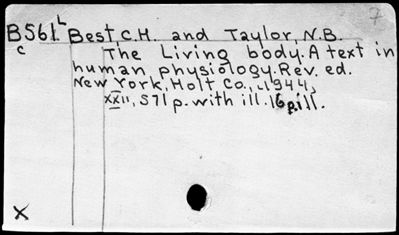 7
B561L Best, C.H. and Taylor, N.B.
c The Living body. A text in
human physiology. Rev. ed.
New York, Holt Co., c1944,
xxii, 571 p. with ill. 16 pill.
X